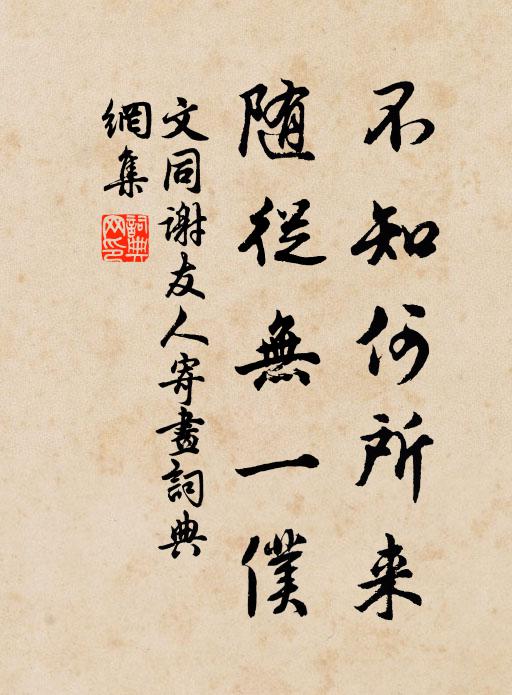 不知何所来
随從無一僕
文同謝友人寄畫詞典
網集
詞典
网印